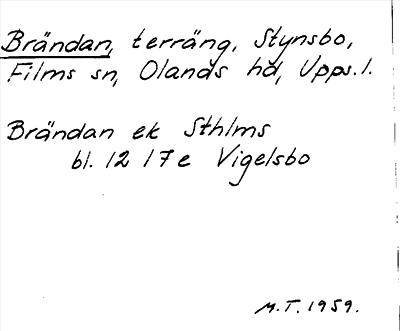 Brändan, terräng, Stynsbo,
Films sn, Olands hd, Upps.l.
Brändan ek Sthlms
bl. 12 17e Vigelsbo
M.T. 1959.